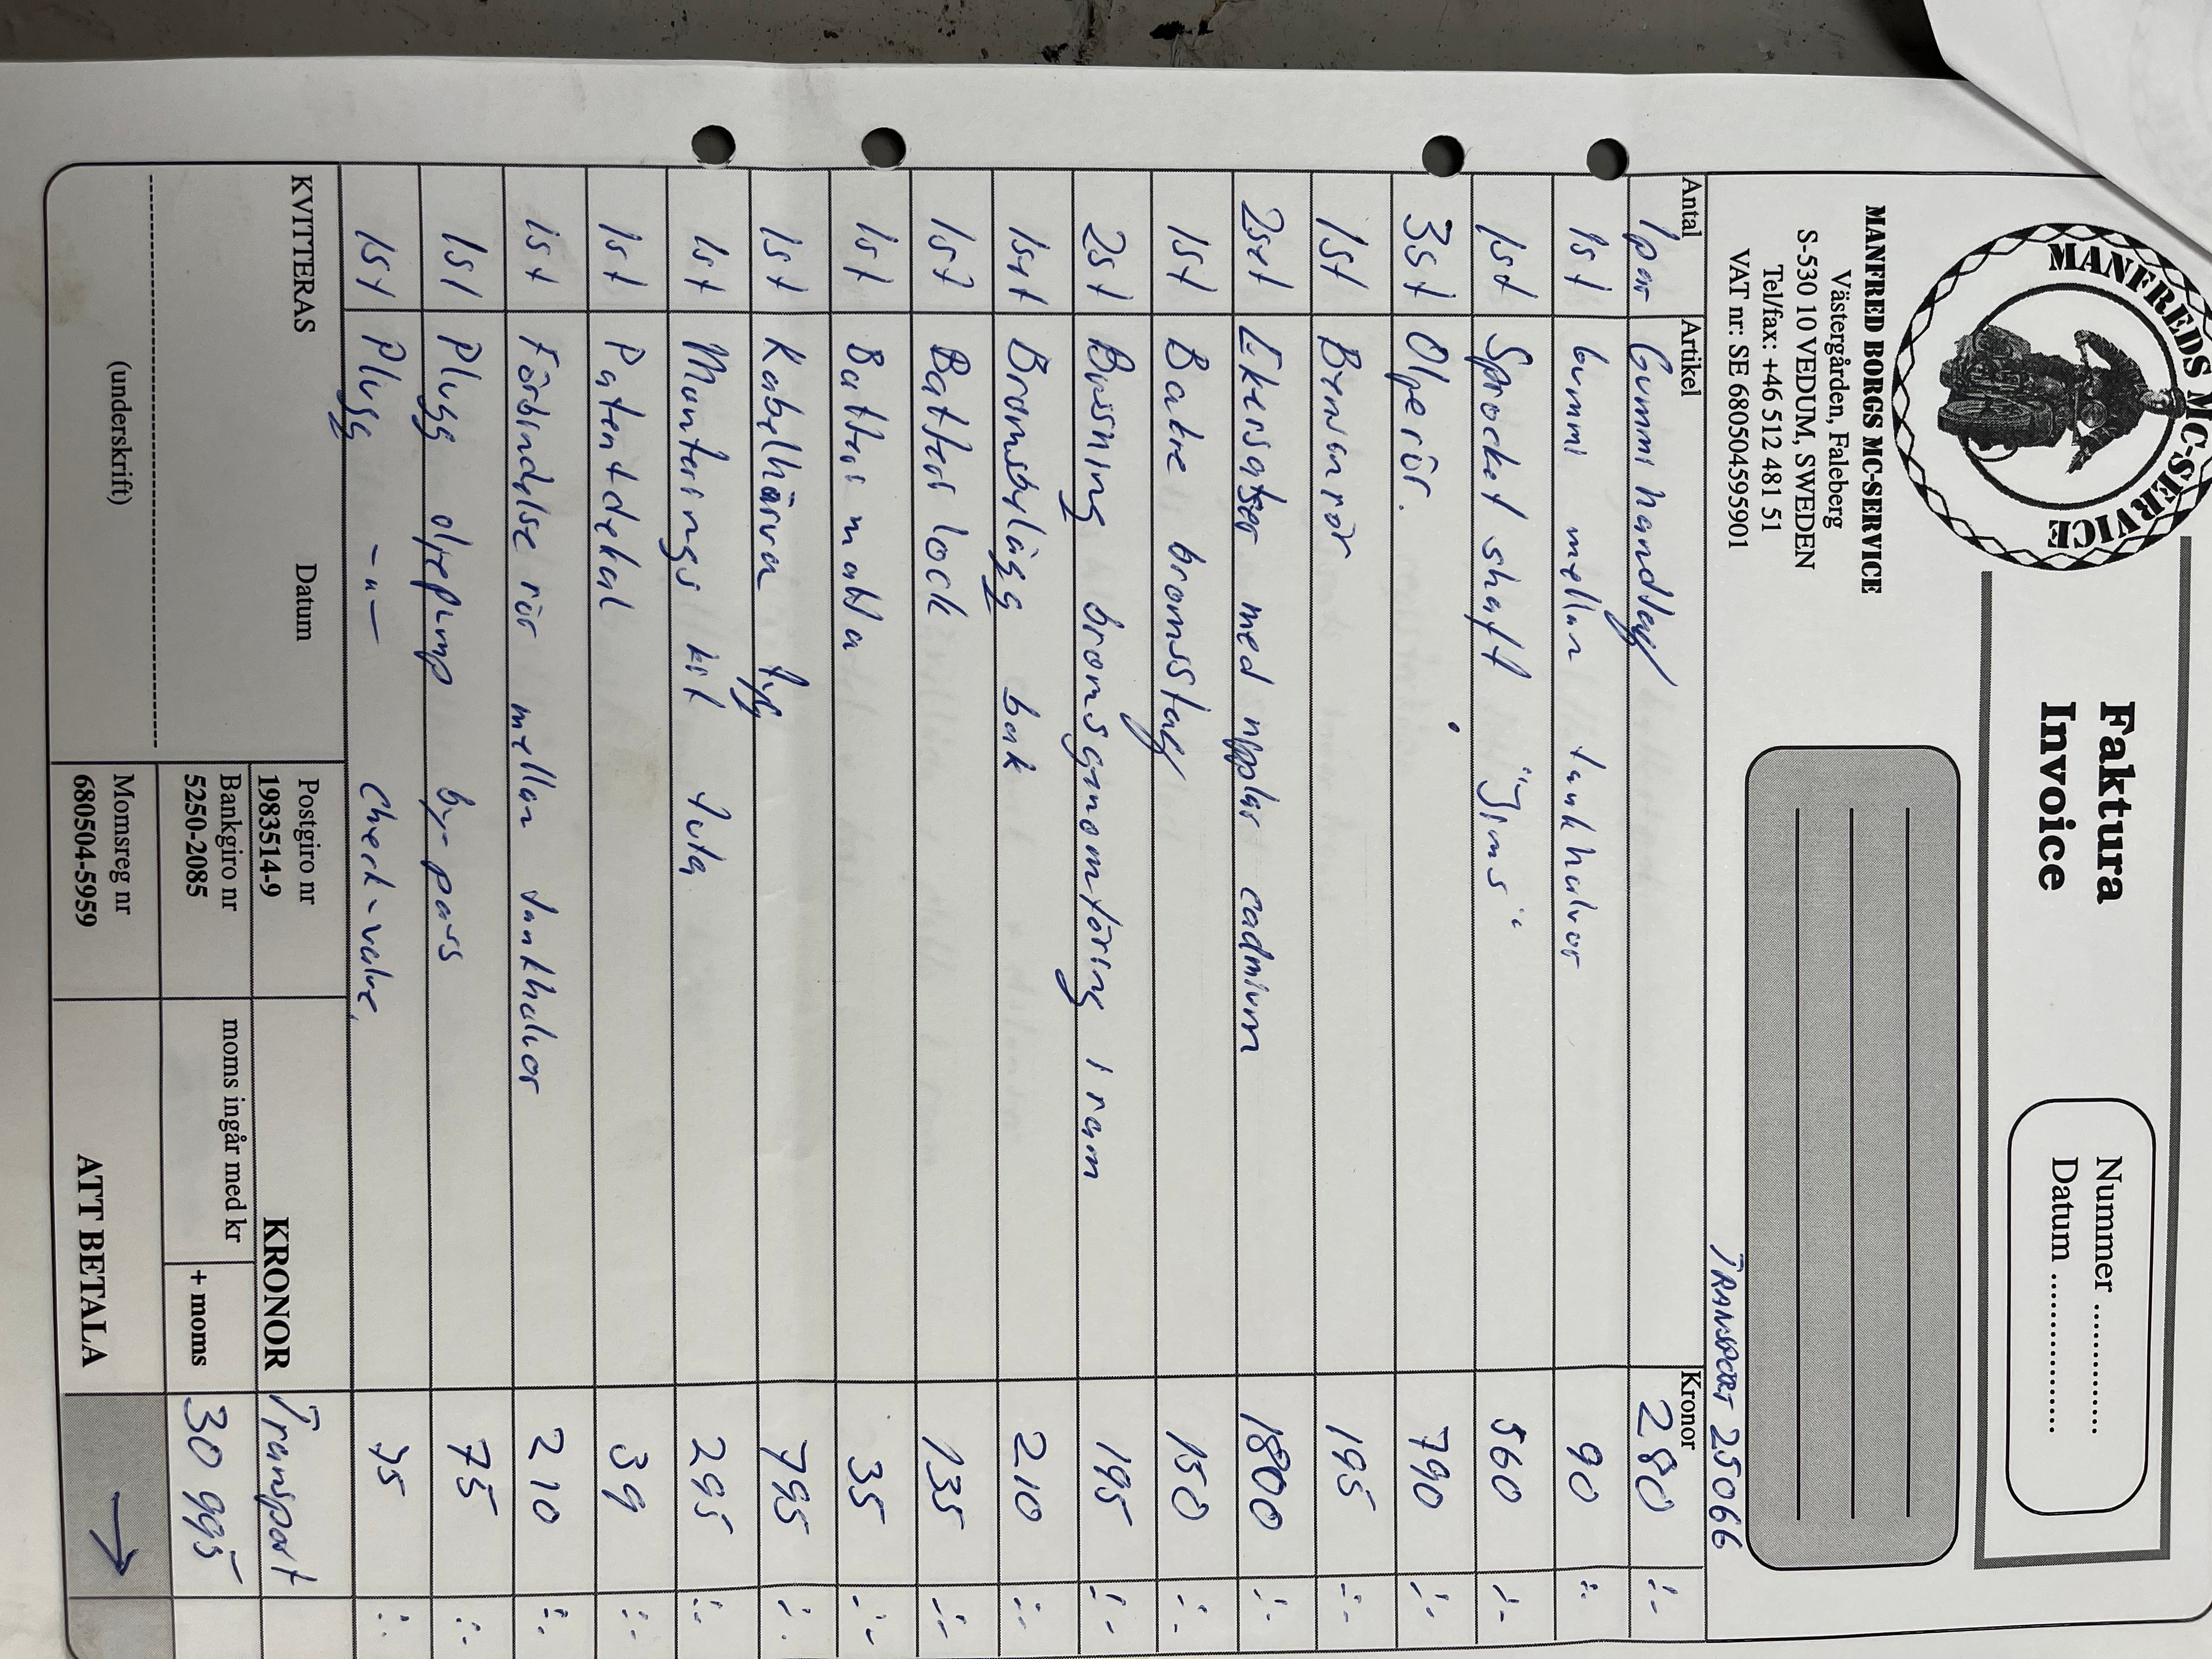 MANFREDS MC-SERVICE
Faktura
Invoice
Nummer ..............
Datum ..................
MANFRED BORGS MC-SERVICE
Västergården, Faleberg
S-530 10 VEDUM, SWEDEN
Tel/fax: +46 512 481 51
VAT nr: SE 680504595901
TRANSPORT 25066
Antal Artikel Kronor
1 par Gummi handtag 280 :-
1st Gummi mellan tankhalvor 90 :-
1st Sprocket shaft "Jims" 560 :-
3st Oljerör. 790 :-
1st Bensinrör 195 :-
2set Ekersatser med nipplar cadmium 1800 :-
1st Bakre bromsstag 150 :-
2st Bussning bromsgenomföring i ram 195 :-
1set Bromsbelägg bak 210 :-
1st Batteri lock 135 :-
1st Batteri matta 35 :-
1st Kabelhärva tyg 795 :-
1st Monterings kit tuta 295 :-
1st Patentdekal 39 :-
1st Förbindelse rör mellan tankhalvor 210 :-
1st Plugg oljepump by-pass 75 :-
1st Plugg -"- check-valve. 75 :-
KVITTERAS Datum
(underskrift)
Postgiro nr
1983514-9
Bankgiro nr
5250-2085
Momsreg nr
680504-5959
KRONOR Transport
moms ingår med kr + moms 30 995
ATT BETALA →